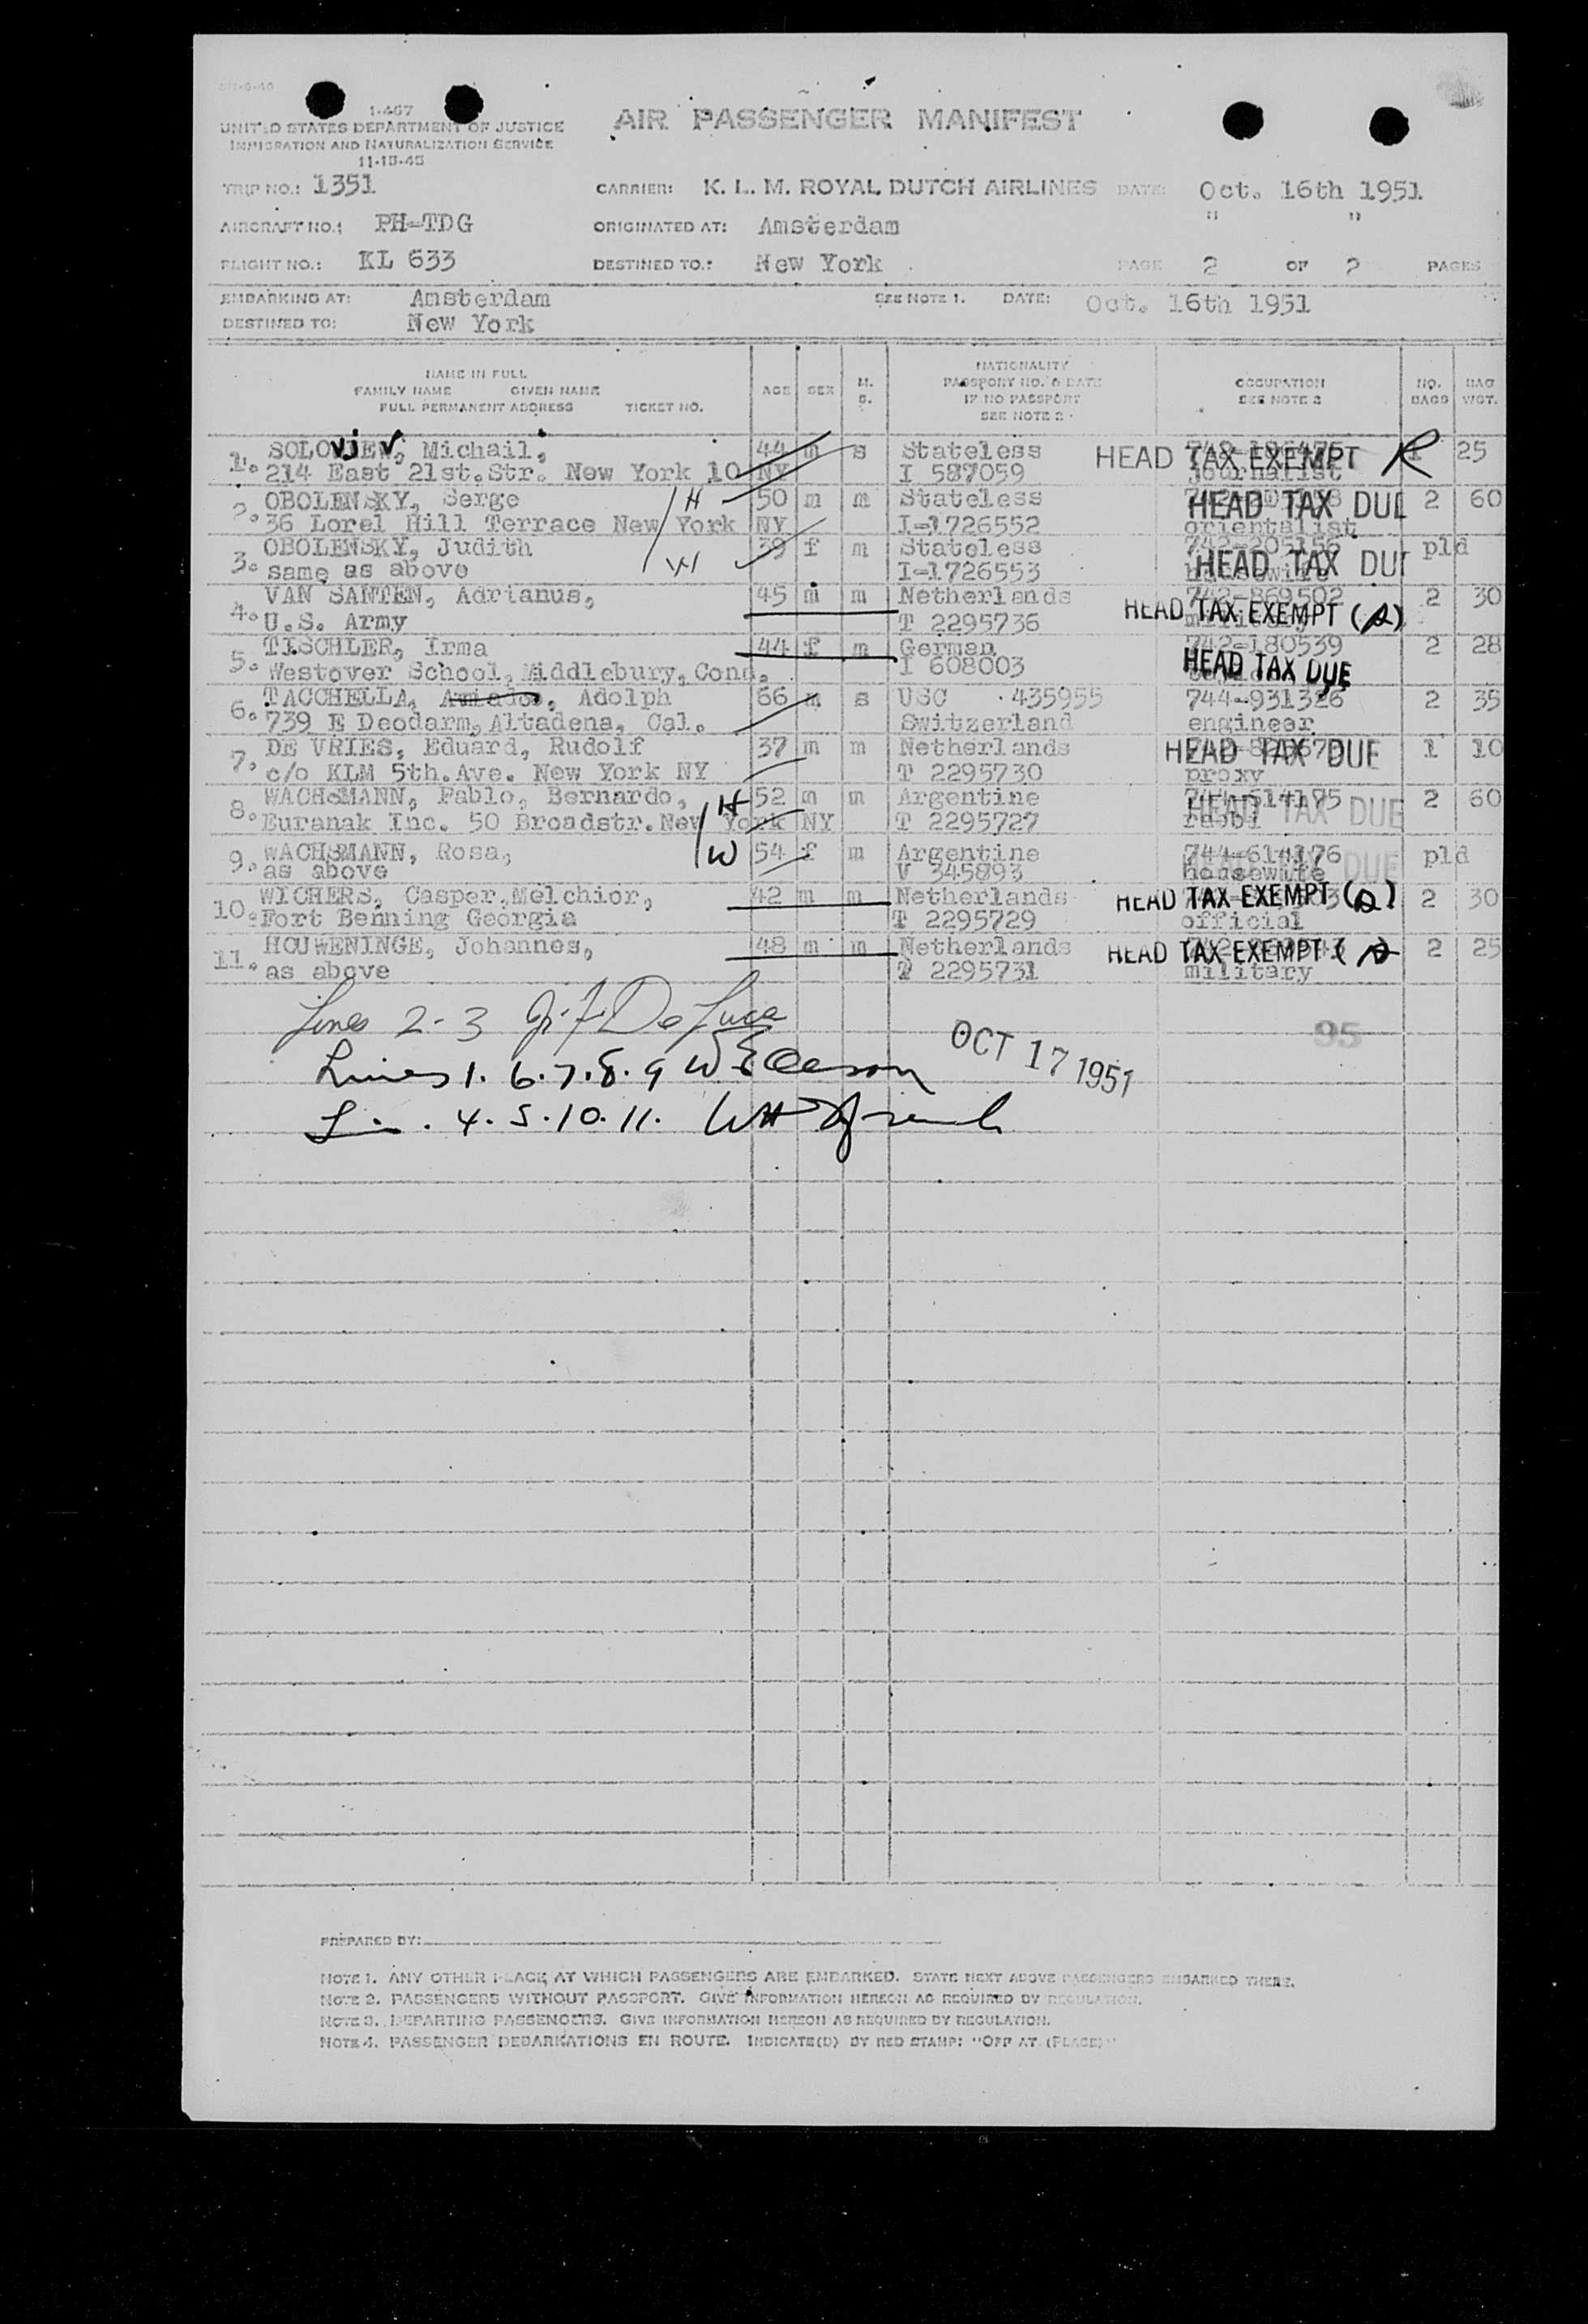 1-467
UNITED STATES DEPARTMENT OF JUSTICE
IMMIGRATION AND NATURALIZATION SERVICE
11-15-45
AIR PASSENGER MANIFEST
TRIP NO.: 1351 CARRIER: K. L. M. ROYAL DUTCH AIRLINES DATE: Oct. 16th 1951
AIRCRAFT NO.: PH-TDG ORIGINATED AT: Amsterdam " "
FLIGHT NO.: KL 633 DESTINED TO.: New York PAGE 2 OF 2 PAGES
EMBARKING AT: Amsterdam SEE NOTE 1. DATE: Oct. 16th 1951
DESTINED TO: New York
NAME IN FULL
FAMILY NAME GIVEN NAME
FULL PERMANENT ADDRESS TICKET NO.
AGE SEX M. S.
NATIONALITY
PASSPORT NO. & DATE
IF NO PASSPORT
SEE NOTE 2
OCCUPATION
SEE NOTE 3
NO. BAGS
BAG WGT.
1. SOLOVJEV, Michail, 44 m s Stateless HEAD TAX EXEMPT R 25
214 East 21st.Str. New York 10 NY I 587059 journalist
2. OBOLENSKY, Serge H 50 m m Stateless HEAD TAX DUE 2 60
36 Lorel Hill Terrace New York NY I-1726552 orientalist
3. OBOLENSKY, Judith W 39 f m Stateless 742-205156 pld
same as above I-1726553 HEAD TAX DUE housewife
4. VAN SANTEN, Adrianus, 45 m m Netherlands 742-869502 2 30
U.S. Army T 2295736 HEAD TAX EXEMPT (A)
5. TISCHLER, Irma 44 f m German 742-180539 2 28
Westover School, Middlebury, Conn. I 608003 HEAD TAX DUE
6. TACCHELLA, Adolph 66 m s USC 435955 744-931326 2 35
739 E Deodarm, Altadena, Cal. Switzerland engineer
7. DE VRIES, Eduard, Rudolf 37 m m Netherlands HEAD TAX DUE 1 10
c/o KLM 5th.Ave. New York NY T 2295730 proxy
8. WACHSMANN, Pablo, Bernardo, H 52 m m Argentine 744-614175 2 60
Euranak Inc. 50 Broadstr. New York NY T 2295727 HEAD TAX DUE rabbi
9. WACHSMANN, Rosa, W 54 f m Argentine 744-614176 pld
as above V 345893 HEAD TAX DUE housewife
10. WICHERS, Casper, Melchior, 42 m m Netherlands HEAD TAX EXEMPT (A) 2 30
Fort Benning Georgia T 2295729 official
11. HOUWENINGE, Johannes, 48 m m Netherlands HEAD TAX EXEMPT (A) 2 25
as above T 2295731 military
Lines 2-3 J.F. De Luca
OCT 17 1951 95
Lines 1. 6. 7. 8. 9
4. 5. 10. 11.
PREPARED BY:
NOTE 1. ANY OTHER PLACE AT WHICH PASSENGERS ARE EMBARKED. STATE NEXT ABOVE PASSENGERS EMBARKED THERE.
NOTE 2. PASSENGERS WITHOUT PASSPORT. GIVE INFORMATION HEREON AS REQUIRED BY REGULATION.
NOTE 3. DEPARTING PASSENGERS. GIVE INFORMATION HEREON AS REQUIRED BY REGULATION.
NOTE 4. PASSENGER DEBARKATIONS EN ROUTE. INDICATE(D) BY RED STAMP: "OFF AT (PLACE)"